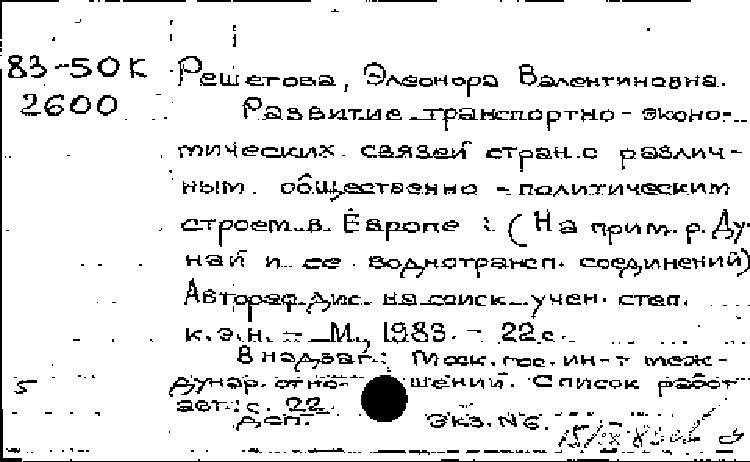 83-50К Решетова, Элеонора Валентиновна.
2600 Развитие транспортно-эконо-
мических связей стран с различ-
ным общественно-политическим
строем в Европе : (На прим. р. Ду-
ная и ее воднотрансп. соединений)
Автореф. дис. на соиск. учен. степ.
к.э.н. - М., 1983. - 22 с.
В надзаг.: Моск. гос. ин-т меж-
5 дунар. отношений. Список работ
авт.: с. 22
Деп. Экз. №6.
15/IX 83